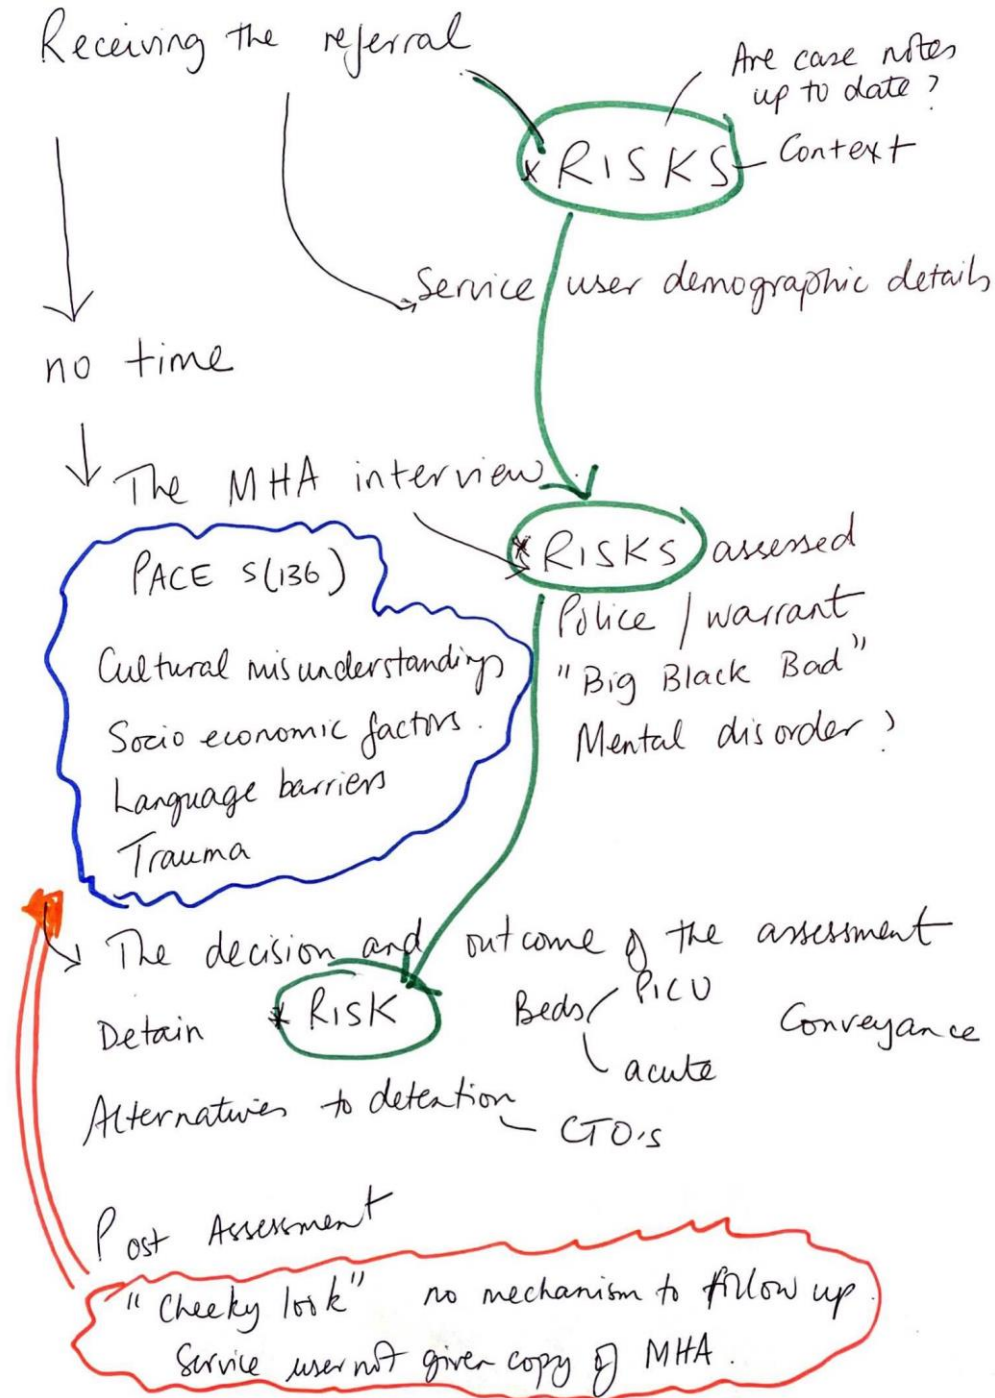 Receiving the referral
Are case notes
up to date?
* RISKS
Context
Service user demographic details
no time
The MHA interview
* RISKS assessed
PACE S(136)
Police / warrant
"Big Black Bad"
Mental disorder?
Cultural misunderstandings
Socio economic factors.
Language barriers
Trauma
The decision and outcome of the assessment
Detain
* RISK
Beds
PICU
acute
Conveyance
Alternatives to detention
CTO's
Post Assessment
"Cheeky look" no mechanism to follow up.
Service user not given copy of MHA.